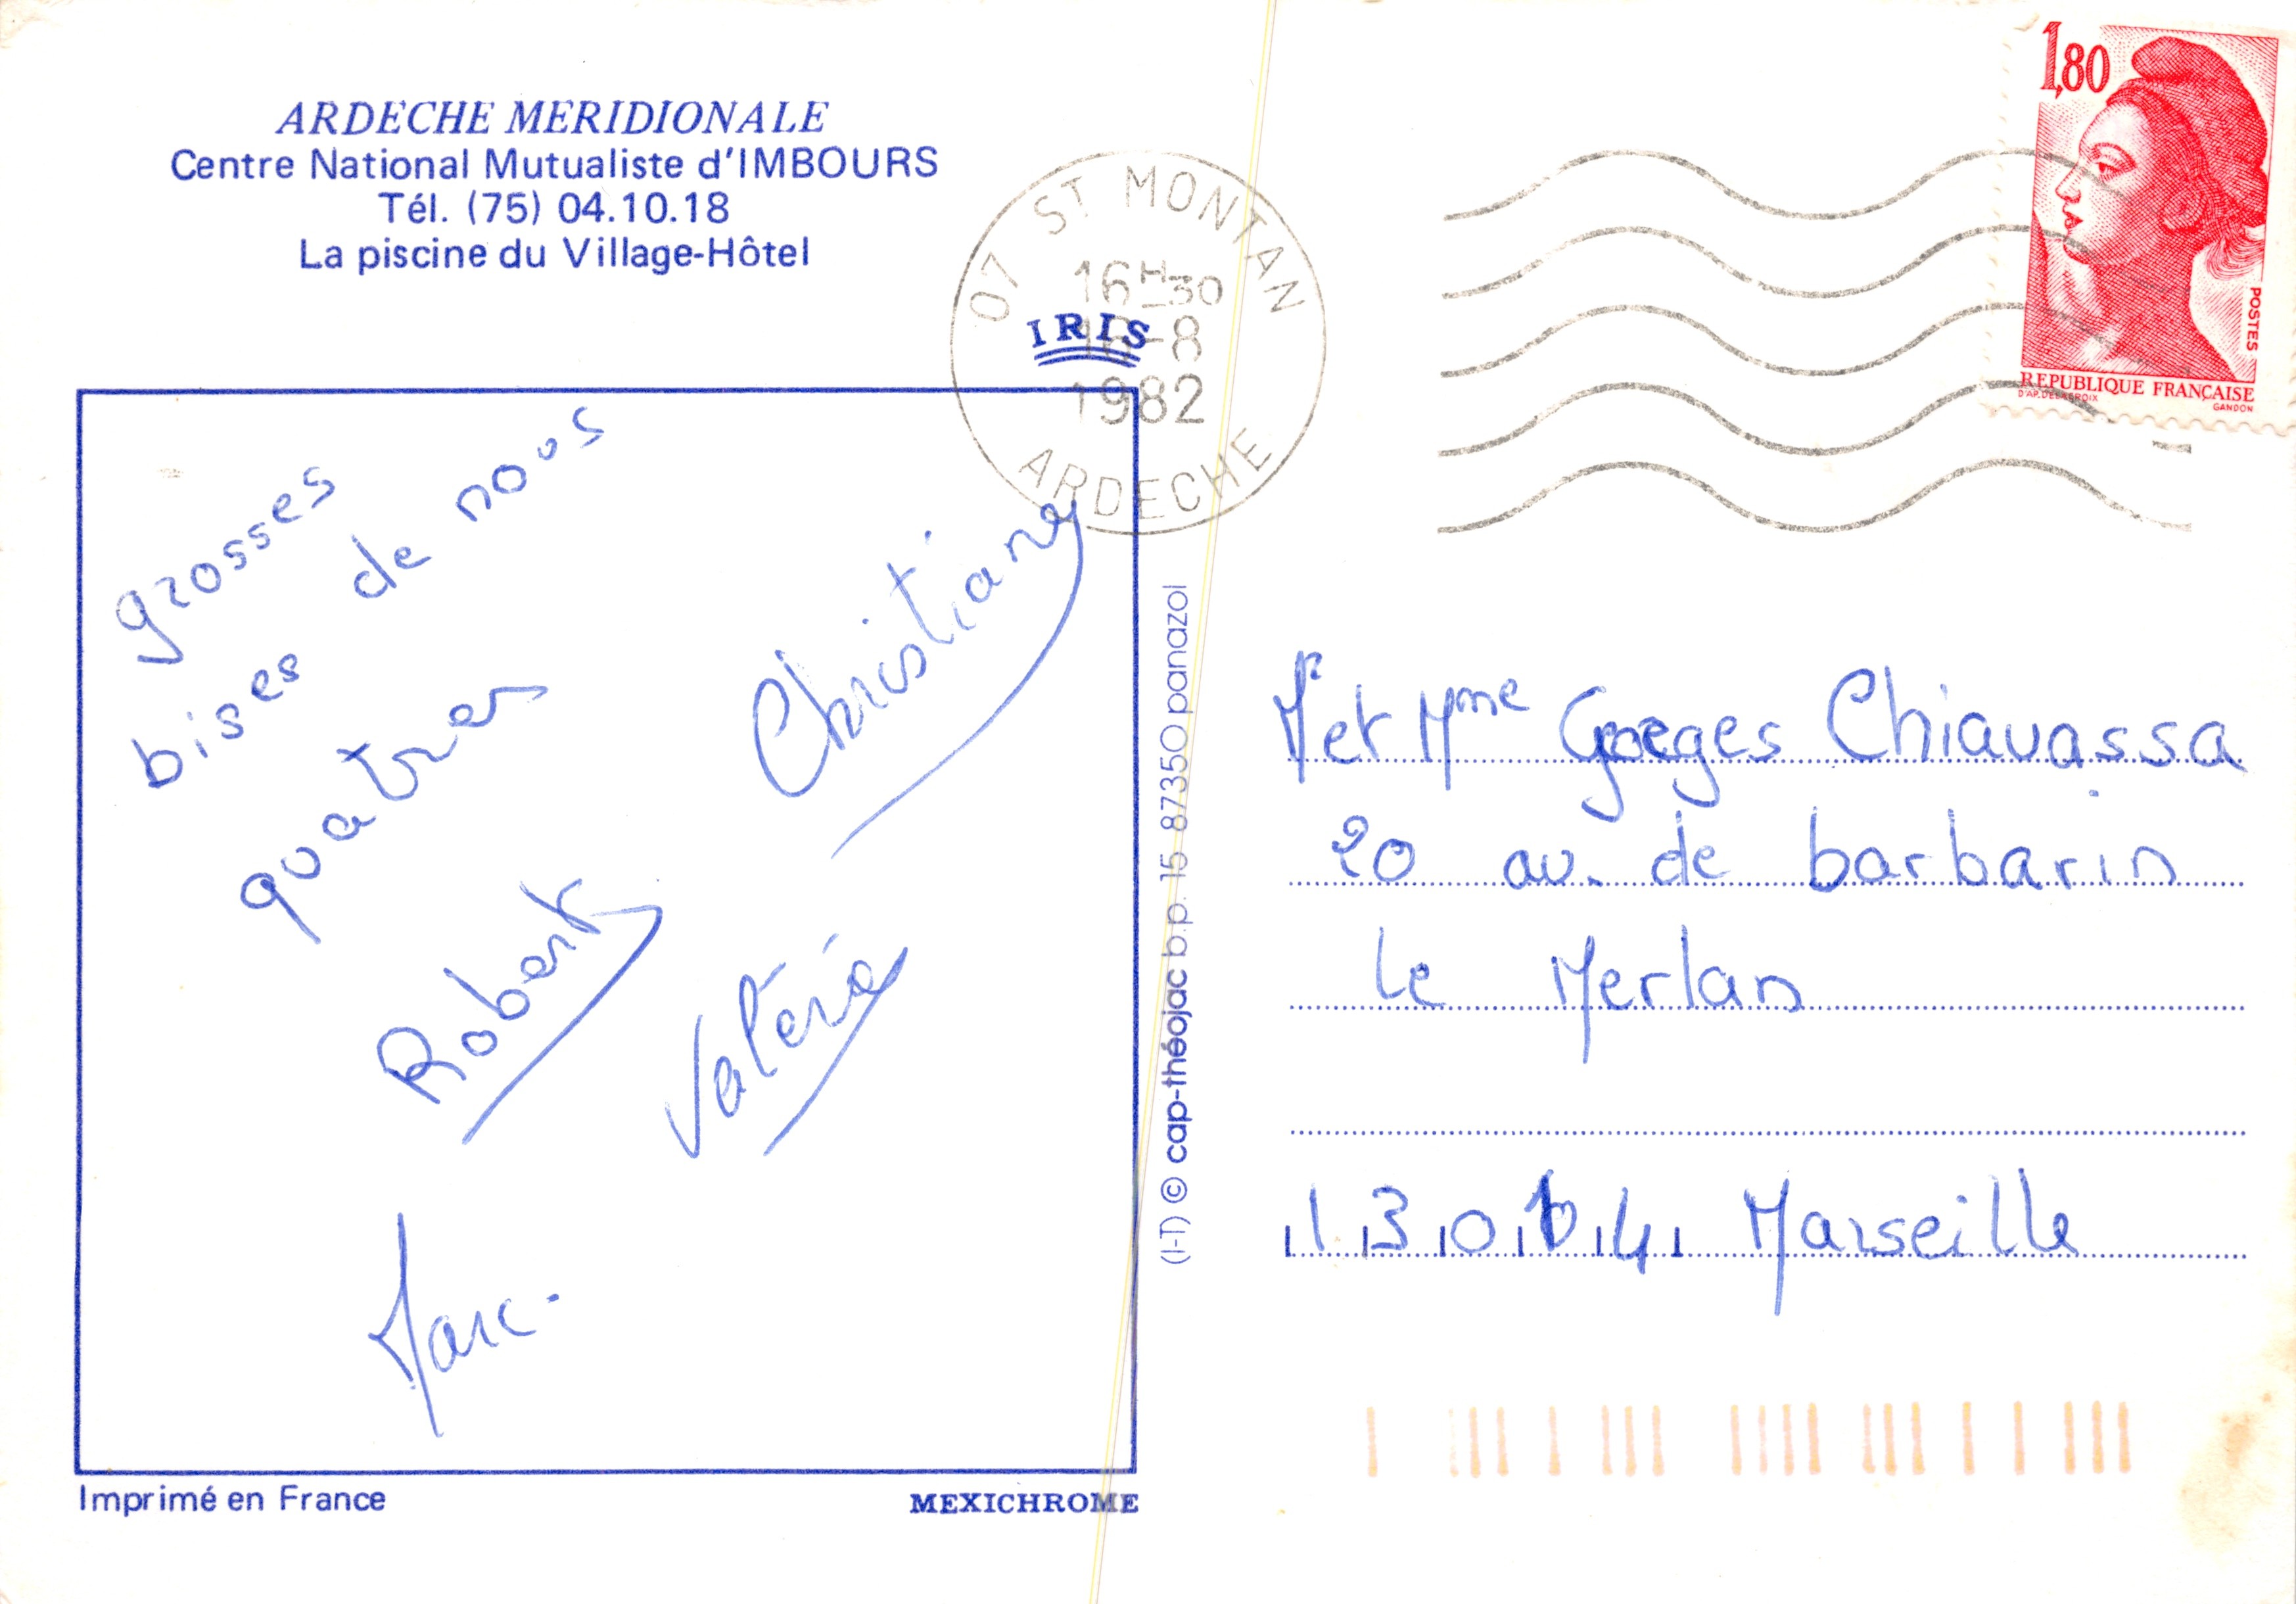 ARDECHE MERIDIONALE
Centre National Mutualiste d'IMBOURS
Tél. (75) 04.10.18
La piscine du Village-Hôtel
IRIS
07 ST MONTAN
16H30
-8
1982
ARDECHE
1,80
POSTES
REPUBLIQUE FRANÇAISE
D'AP. DELACROIX
GANDON
grosses
bises de nous
quatres
Christiane
Robert
Valérie
Marc.
(I-T) © cap-théojac b.p. 15 87350 panazol
Mr et Mme Georges Chiavassa
20 av. de barbarin
Le Merlan
13014 Marseille
Imprimé en France
MEXICHROME